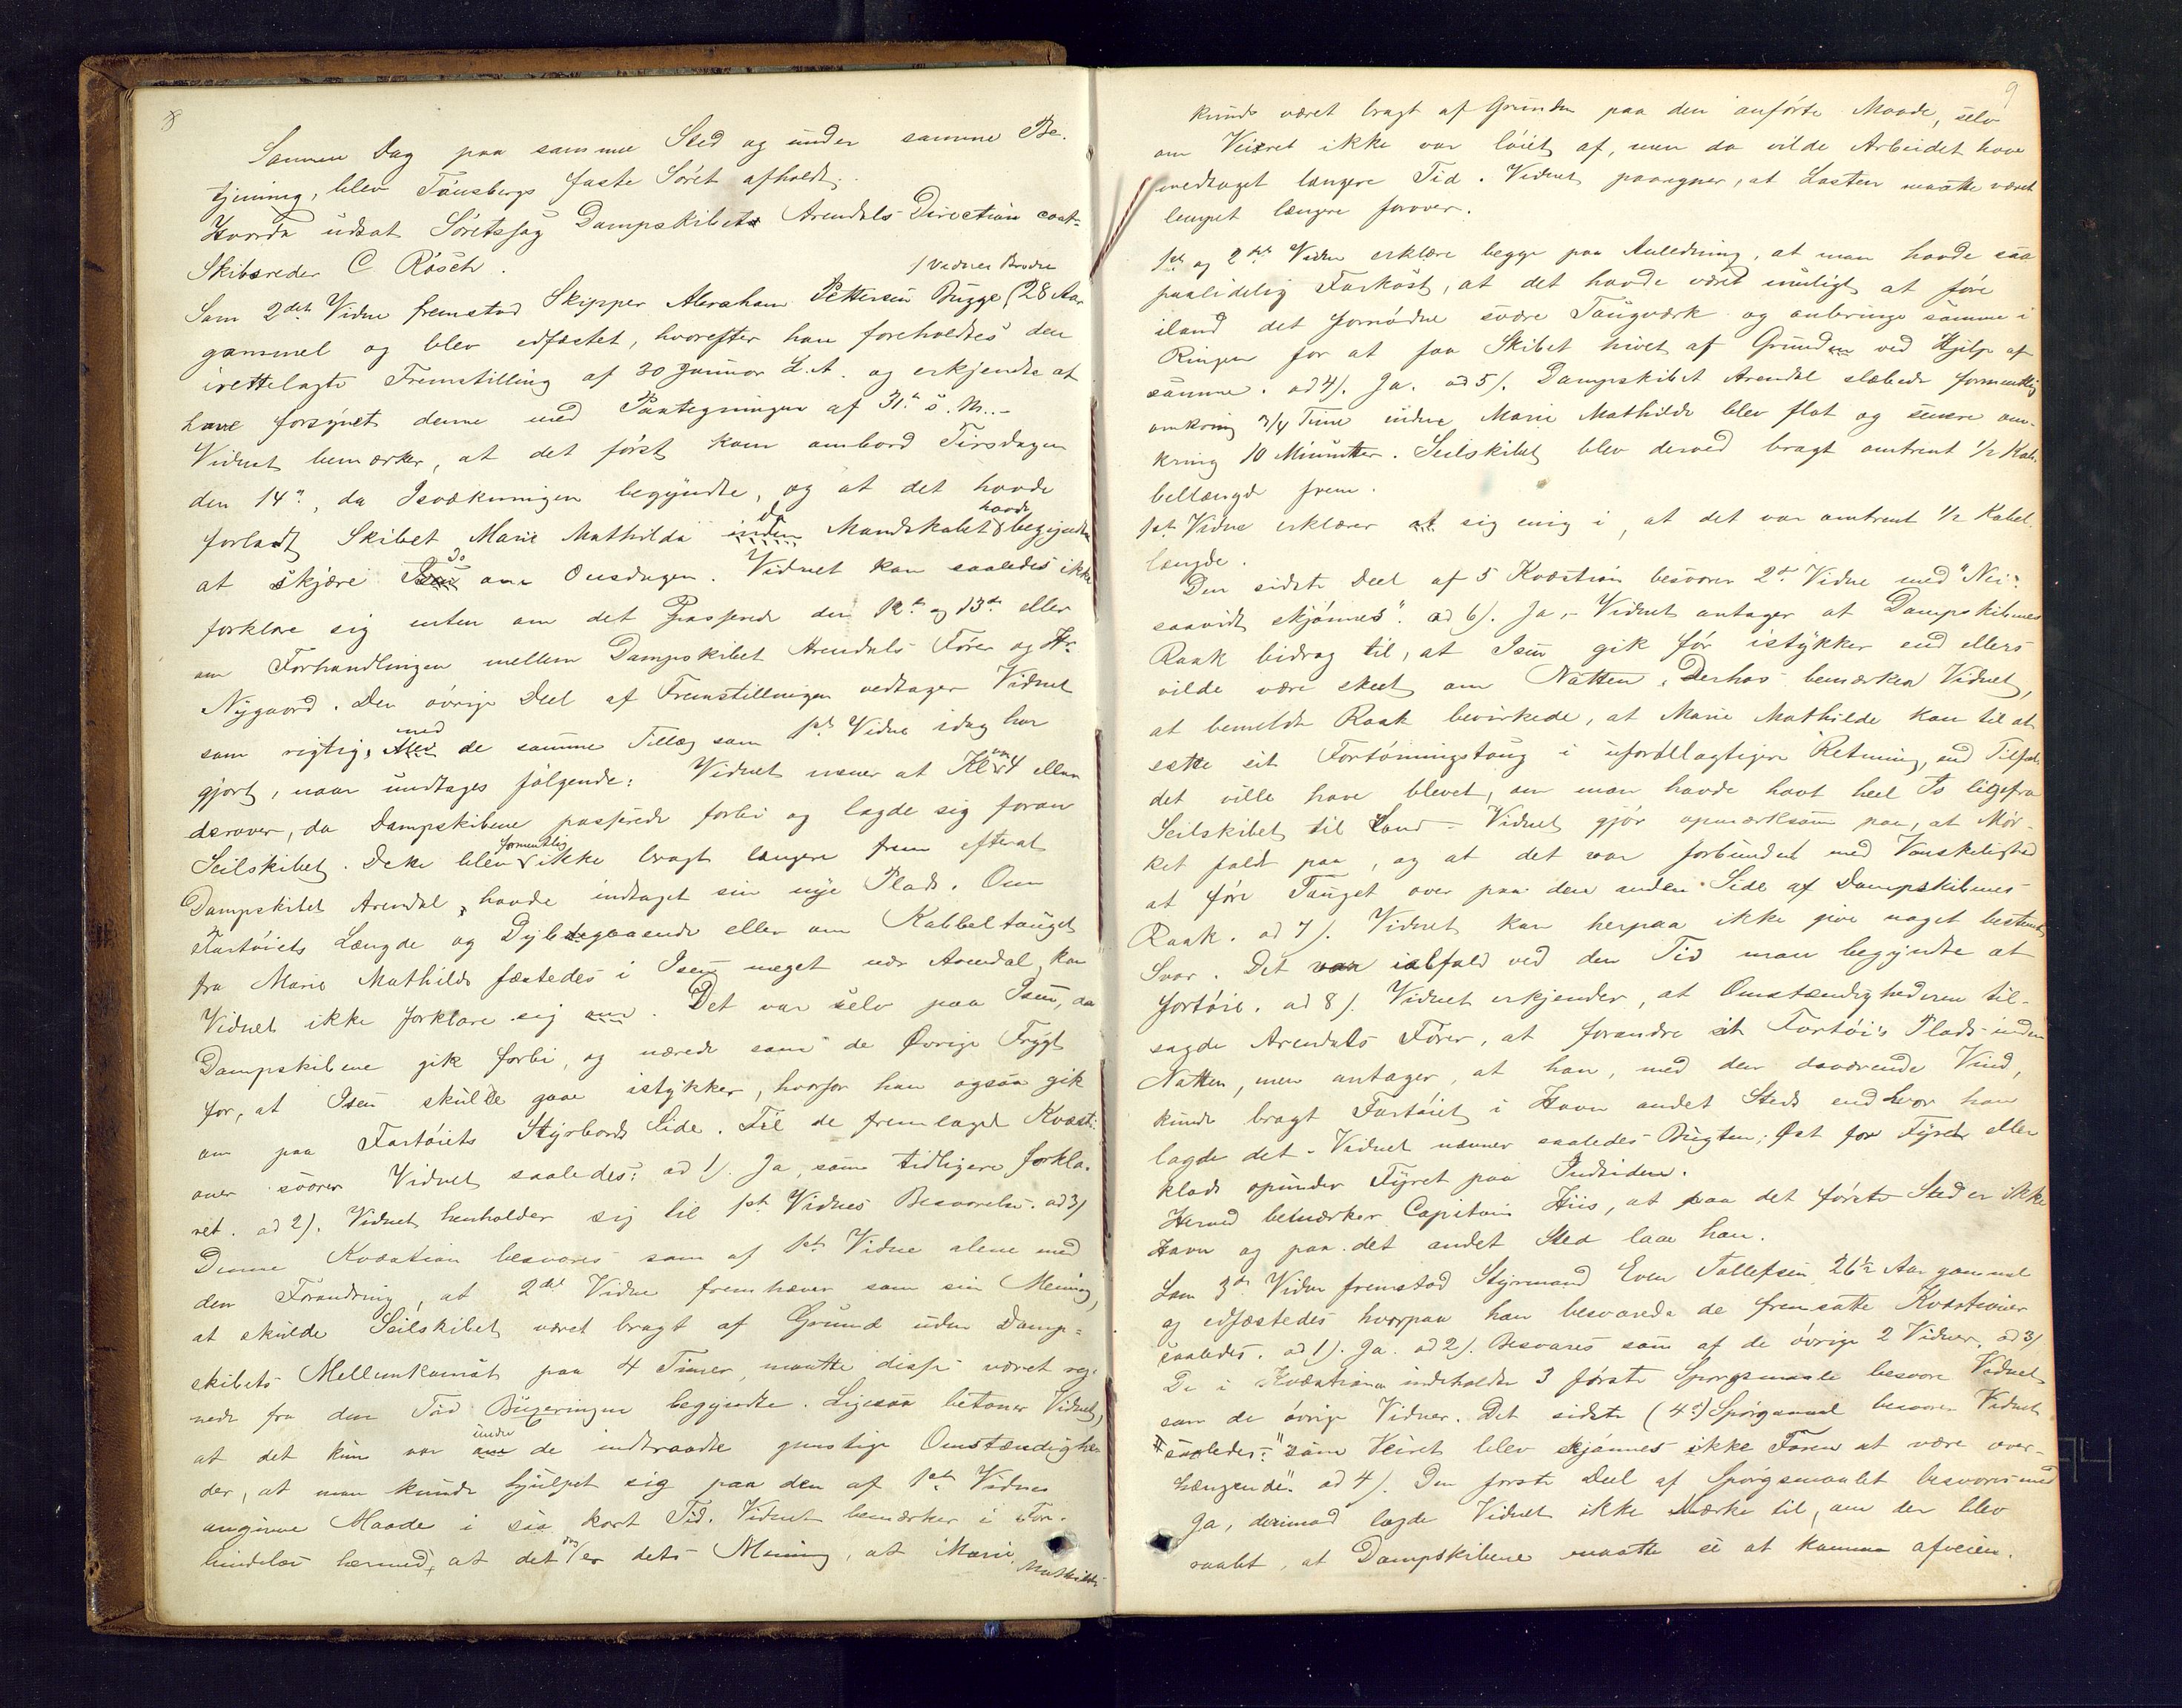 8
Samme Dag paa samme Sted og under samme Be-
tjening, blev Tønsbergs faste Søret afholdt.
Hvorda udsat Søretssag Dampskibet Arendals Direction cont-
Skibsreder C Røsch.
1 Vidnes Broder
Som 2det Vidne fremstod Skipper Abraham Pettersen Bugge (28 Aar
gammel og blev edfæstet, hvorefter han foreholdtes den
irettelagte Fremstilling af 30 Januar d. A. og erkjendte at
have forsynet denne med Paategningen af 31te s. M..-
Vidnet bemærker, at det først kom ombord Tirsdagen
den 14de, da Isvækningen begyndte, og at det havde
forladt Skibet Marie Mathilda inden da Mandskabet havde begyndte
at skjære Isen do om Onsdagen. Vidnet kan saaledes ikke
forklare sig enten om det Passerede den 12te og 13de eller
om Forhandlingen mellem Dampskibet Arendals Fører og Hr.
Nygaard. Den øvrige Deel af Fremstillingen vedtager Vidnet
som rigtig, med de samme Tillæg som 1ste Vidne idag har
gjort, naar undtages følgende: Vidnet mener at Kl. var 4 eller
derover, da Dampskibene passerede forbi og lagde sig foran
Seilskibet. Dette blev formentlig ikke bragt længere frem efterat
Dampskibet Arendal havde indtaget sin nye Plads. Om
Fartøiets Længde og Dybdegaaende eller om Kabbeltauget
fra Marie Mathilde fæstedes i Isen meget nær Arendal, kan
Vidnet ikke forklare sig om. Det var selv paa Isen, da
Dampskibene gik forbi, og nærede som de Øvrige Frygt
for, at Isen skulde gaae istykker, hvorfor han ogsaa gik
om paa Fartøiets Styrbords Side. Til de fremlagte Kvæsti-
oner svarer Vidnet saaledes: ad 1). Ja, som tidligere forkla-
ret. ad 2). Vidnet henholder sig til 1ste Vidnes Besvarelse. ad 3)
Denne Kvæstion besvares som af 1ste Vidne alene med
den Forandring, at 2det Vidne fremhæver som sin Mening,
at skulde Seilskibet været bragt af Grund uden Damp-
skibets Mellemkomst paa 4 Timer, maatte disse været reg-
nede fra den Tid Bugseringen begyndte. Ligesaa betoner Vidnet,
at det kun var under de indtraadte gunstige Omstændighe-
der, at man kunde hjulpet sig paa den af 1ste Vidne
angivne Maade i saa kort Tid. Vidnet bemærker i For-
bindelse hermed, at det er dets Mening, at Marie
Mathilde
9
kunde været bragt af Grunden paa den anførte Maade, selv
om Veiret ikke var løiet af, men da vilde Arbeidet have
medtaget længere Tid. Vidnet paaregner, at Lasten maatte været
lempet længere forover.
1ste og 2det Vidne erklære begge paa Anledning, at man havde saa
paalidelig Farkost, at det havde været muligt at føre
iland det fornødne svære Taugværk og anbringe samme i
Ringen for at faa Skibet hivet af Grunden ved Hjelp af
samme. ad 4). Ja. ad 5). Dampskibet Arendal slæbede formentlig
omkring 3/4 Time inden Marie Mathilde blev flot og senere om-
kring 10 Minutter. Seilskibet blev derved bragt omtrent 1/2 Kab-
bellængde frem.
1ste Vidne erklærer at sig enig i, at det var omtrent 1/2 Kabel-
længde.
Den sidste Deel af 5 Kvæstion besvarer 2det Vidne med "Nei
saavidt skjønnes". ad 6). Ja,- Vidnet antager at Dampskibenes
Raak bidrog til, at Isen gik før istykker end ellers
vilde være skeet om Natten. Derhos bemærker Vidnet,
at bemeldte Raak bevirkede, at Marie Mathilde kom til at
sætte sit Fortøiningstaug i ufordelagtigere Retning, end Tilfæl-
det ville have blevet, om man havde havt heel Is ligefra
Seilskibet til Land - Vidnet gjør opmærksom paa, at Mør-
ket faldt paa, og at det var forbundet med Vanskelighed
at føre Tauget over paa den anden Side af Dampskibenes
Raak. ad 7). Vidnet kan herpaa ikke give noget bestemt
Svar. Det var ialfald ved den Tid man begyndte at
fortøie. ad 8). Vidnet erkjender, at Omstændighederne til-
sagde Arendals Fører, at forandre sit Fartøis Plads inden
Natten, men antager, at han, med den daværende Vind,
kunde bragt Fartøiet i Havn andet Steds end hvor han
lagde det. Vidnet nævner saaledes Bugten, Øst for Fyret eller
klods opunder Fyret paa Indsiden.
Hermed bemærker Capitain Hiis, at paa det første Sted er ikke
Havn og paa det andet Sted laae han.
Som 3de Vidne fremstod Styrmand Even Tollefsen 26 1/2 Aar gammel
og edfæstedes hvorpaa han besvarede de fremsatte Kvæstioner
saaledes. ad 1). Ja. ad 2). Besvares som af de øvrige 2 Vidner. ad 3)
De i Kvæstionen indeholdte 3 første Spørgsmaale besvarer Vidnet
som de øvrige Vidner. Det sidste (4de) Spørgsmaal besvarer Vidnet
saaledes: "som Veiret blev skjønnes ikke Faren at være over-
hængende". ad 4). Den første Deel af Spørgsmaalet besvares med
Ja, derimod lagde Vidnet ikke Mærke til, om der blev
raabt, at Dampskibene maatte se at komme afveien.